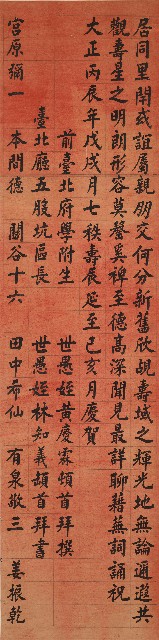 居同里閈或誼屬親朋交何分新舊欣覩壽域之輝光地無論邇遐共
觀壽星之明朗形容莫罄奚裨至德高深聞見最詳聊藉蕪詞誦祝
大正丙辰年戊戌月七秩壽展延至己亥月慶賀
前臺北府學附生 世愚姪黃慶霖頓首拜撰
臺北廳五股坑區長 世愚姪林知義頓首拜書
宮原彌一 本間德 關谷十六 田中希仙 有泉敬三 姜振乾